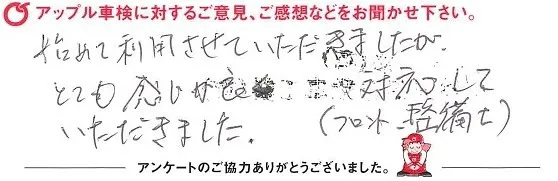 アップル車検に対するご意見、ご感想などをお聞かせ下さい。
始めて利用させていただきましたが、
とても感じが良 対応して
いただきました。(フロント、整備士)
アンケートのご協力ありがとうございました。